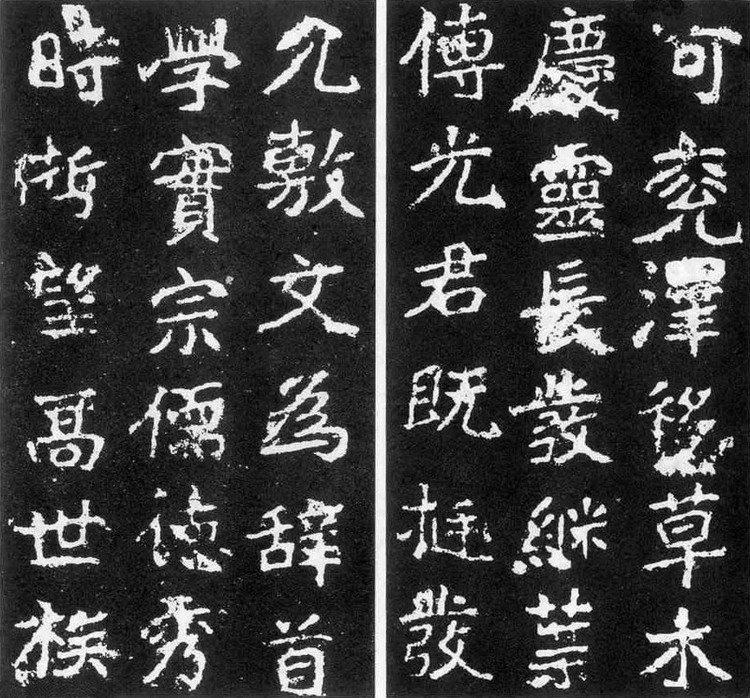 可堯澤草木
慶靈長發
傅光君既挺發
允敷文為辭首
學實宗儒德秀
時哲望高世族